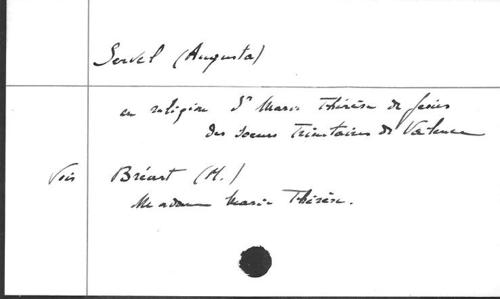 Servel (Augusta)
en religion Sr Marie Thérèse de Jésus
des soeurs Trinitaires de Valence
Voir Bréart (H.)
Madame Marie Thérèse.